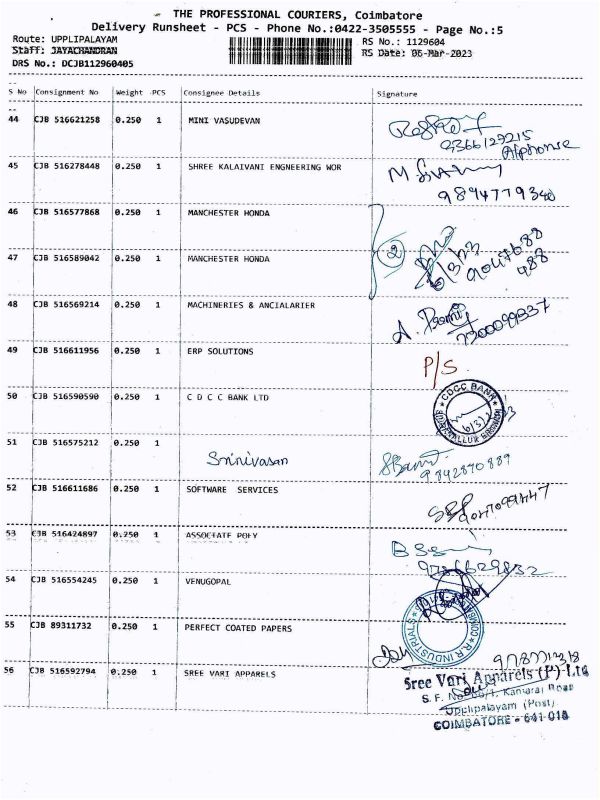 THE PROFESSIONAL COURIERS, Coimbatore
Delivery Runsheet - PCS - Phone No.:0422-3505555 - Page No.:5
Route: UPPLIPALAYAM RS No.: 1129604
Staff: JAYACHANDRAN RS Date: 06-Mar-2023
DRS No.: DCJB112960405
S No Consignment No Weight PCS Consignee Details Signature
44 CJB 516621258 0.250 1 MINI VASUDEVAN
Alphonse
45 CJB 516278448 0.250 1 SHREE KALAIVANI ENGNEERING WOR
9894779340
46 CJB 516577868 0.250 1 MANCHESTER HONDA
2
47 CJB 516589042 0.250 1 MANCHESTER HONDA
48 CJB 516569214 0.250 1 MACHINERIES & ANCIALARIER
49 CJB 516611956 0.250 1 ERP SOLUTIONS P/S
50 CJB 516590590 0.250 1 C D C C BANK LTD CDCC BANK
51 CJB 516575212 0.250 1
Srinivasan 9842870889
52 CJB 516611686 0.250 1 SOFTWARE SERVICES
53 CJB 516424897 0.250 1 ASSOCIATE POLY
54 CJB 516554245 0.250 1 VENUGOPAL
55 CJB 89311732 0.250 1 PERFECT COATED PAPERS R.R INDUSTRIALS
56 CJB 516592794 0.250 1 SREE VARI APPARELS Sree Vari Apparels (P) Ltd
Kamaraj Road
Upplipalayam (Post)
COIMBATORE - 641 015